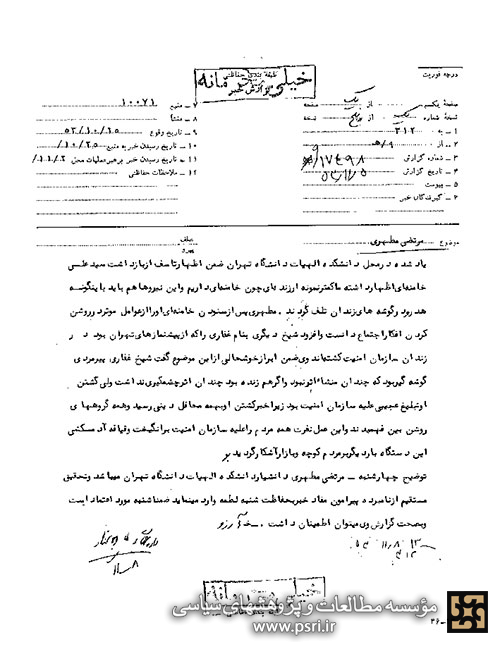 درجه فوریت
طبقه بندی حفاظتی
خیلی محرمانه
گزارش خبر
صفحه یکم از یک صفحه
نسخه شماره یک از پنج نسخه
۱ - به ۳۱۲
۲ - از ۹ ه
۳ - شماره گزارش ۱۷۴۹۸
۴ - تاریخ گزارش
۵ - پیوست
۶ - گیرندگان خبر
۷ - منبع ۱۰۰۷۱
۸ - منشأ
۹ - تاریخ وقوع ۵۳/۱۰/۲۵
۱۰ - تاریخ رسیدن خبر به منبع ۱۰/۲۵/
۱۱ - تاریخ رسیدن خبر برهبر عملیات محل ۱۱/۲/
۱۲ - ملاحظات حفاظتی
موضوع مرتضی مطهری
یاد شده در محل دانشکده الهیات دانشگاه تهران ضمن اظهار تاسف از بازداشت سید علی
خامنه‌ای اظهار داشته ماکمتر نمونه ارزنده‌ای چون خامنه‌ای داریم و این نیروها هم باید باینگونه
هدر رود و گوشه های زندان تلف گردند. مطهری پس از ستودن خامنه‌ای اورا از عوامل موثر در روشن
کردن افکار اجتماع دانست وافزود شیخ دیگری بنام غفاری را که از پیشنمازهای تهران بود در
زندان سازمان امنیت کشته‌اند وی ضمن ابراز خوشحالی از این موضوع گفت شیخ غفاری پیرمردی
گوشه گیر بود که چندان منشاء اثر نبود واگر هم زنده بود چندان اثر چشمگیری نداشت ولی کشتن
او تبلیغ عجیبی علیه سازمان امنیت بود زیرا خبر کشتن او بهمه محافل دینی رسید و همه گروههای
روشن بین فهمیدند و این عمل نفرت همه مردم را علیه سازمان امنیت برانگیخت وقیافه آدمکشی
این دستگاه بار دیگر بر مردم کوچه وبازار آشکار گردید
توضیح چهارشنبه - مرتضی مطهری دانشیار دانشکده الهیات دانشگاه تهران میباشد وتحقیق
مستقیم از نامبرده پیرامون مفاد خبر بحفاظت شنبه لطمه وارد مینماید ضمنا شنبه مورد اعتماد است
وبصحت گزارش وی میتوان اطمینان داشت.
۱۱/۸
۳۱۲
خیلی محرمانه
مؤسسه مطالعات و پژوهشهای سیاسی
www.psri.ir
۲۶-